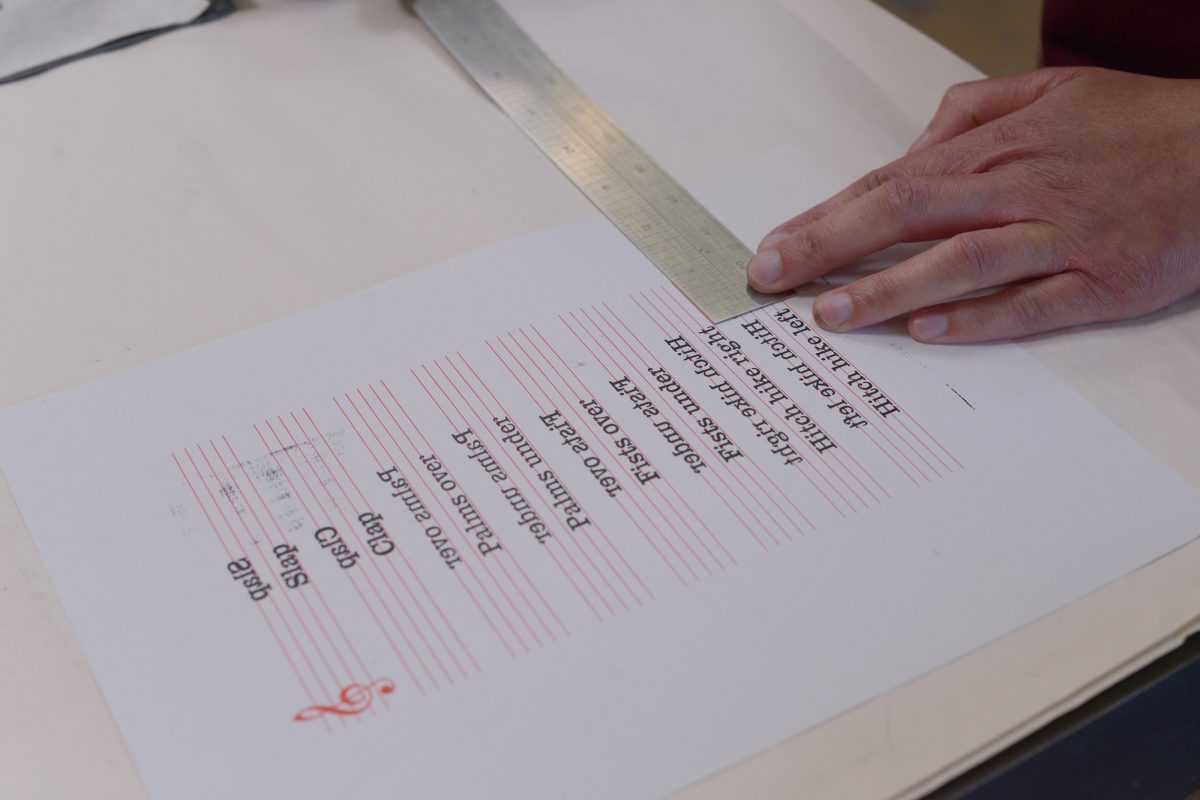 Slap
Slap
Clap
Clap
Palms over
Palms over
Palms under
Palms under
Fists over
Fists over
Fists under
Fists under
Hitch hike right
Hitch hike right
Hitch hike left
Hitch hike left